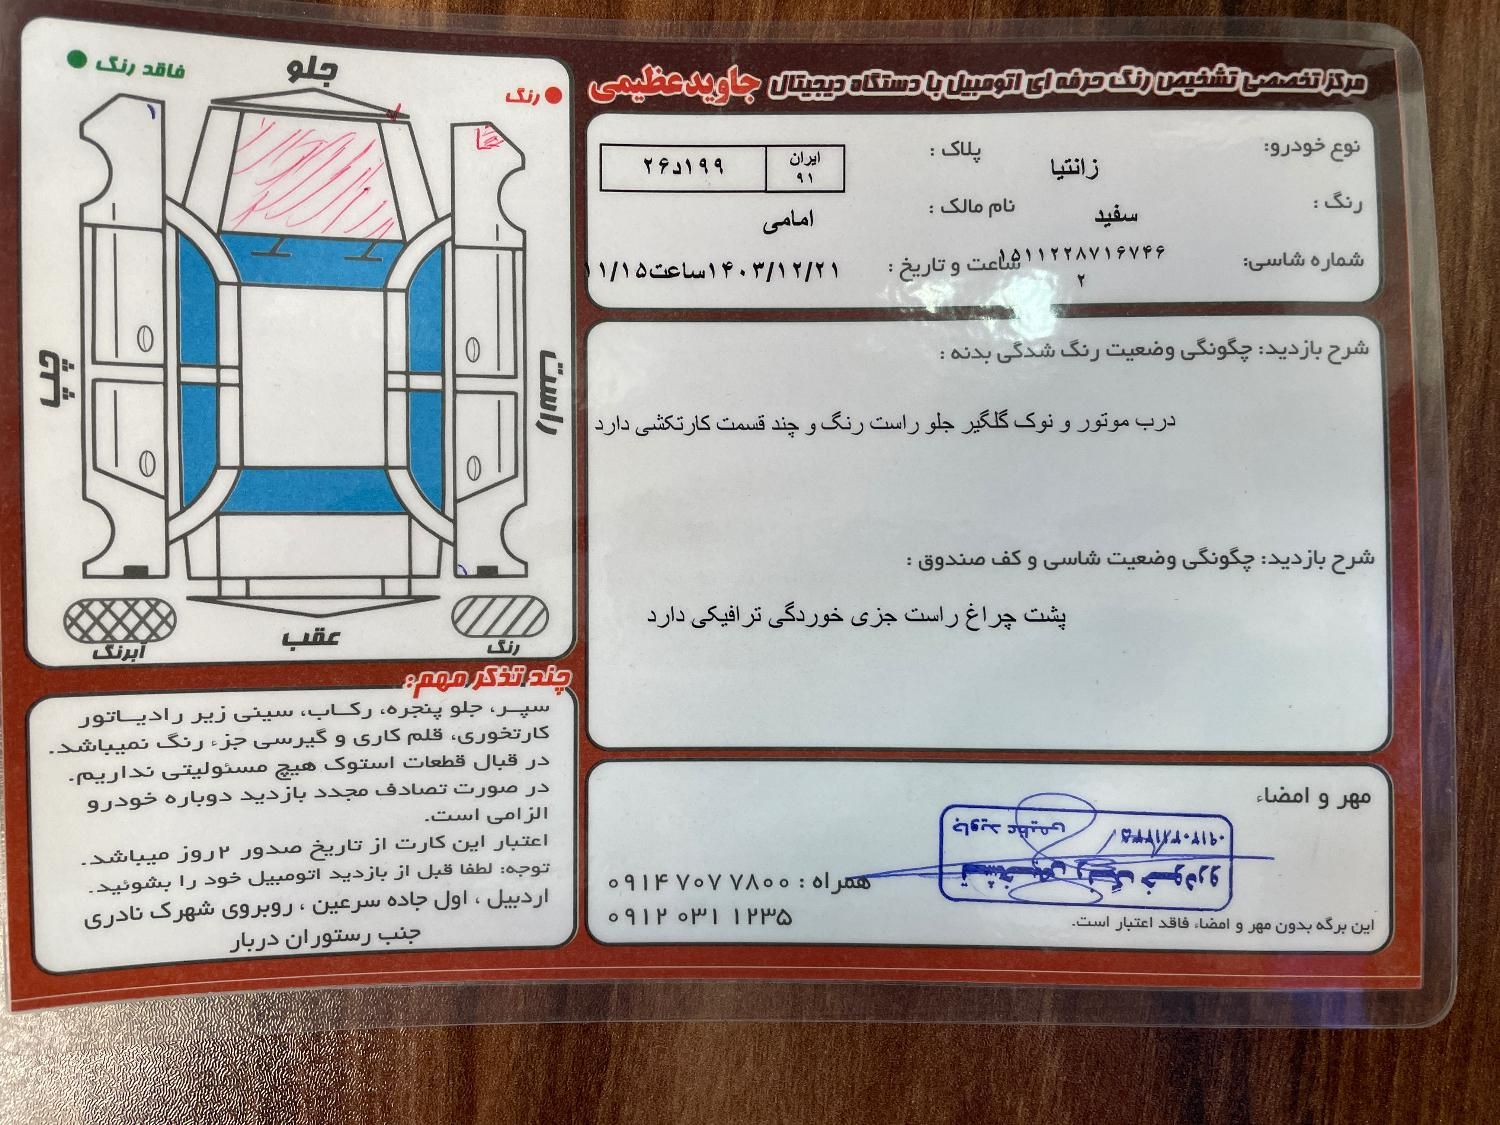 مرکز تخصصی تشخیص رنگ حرفه ای اتومبیل با دستگاه دیجیتال جاوید عظیمی
نوع خودرو: زانتیا
پلاک : ایران ۹۱ ۱۹۹د۲۶
رنگ : سفید
نام مالک : امامی
شماره شاسی: ۱۵۱۱۲۲۸۷۱۶۷۴۶
۲
ساعت و تاریخ : ۱۴۰۳/۱۲/۲۱ساعت۱۱/۱۵
شرح بازدید: چگونگی وضعیت رنگ شدگی بدنه :
درب موتور و نوک گلگیر جلو راست رنگ و چند قسمت کارتکشی دارد
شرح بازدید: چگونگی وضعیت شاسی و کف صندوق :
پشت چراغ راست جزی خوردگی ترافیکی دارد
مهر و امضاء
جاوید عظیمی
تشخیص رنگ خودرو
همراه : ۰۹۱۴ ۷۰۷ ۷۸۰۰
۰۹۱۲ ۰۳۱ ۱۲۳۵
این برگه بدون مهر و امضاء فاقد اعتبار است.
رنگ
فاقد رنگ
جلو
راست
چپ
عقب
رنگ
آبرنگ
چند تذکر مهم:
سپـر، جلو پنجره، رکـاب، سینی زیر رادیـاتور
کارتخوری، قلم کاری و گیرسی جزء رنگ نمیباشد.
در قبال قطعات استوک هیچ مسئولیتی نداریم.
در صورت تصادف مجدد بازدید دوباره خودرو
الزامی است.
اعتبار این کارت از تاریخ صدور ۲روز میباشد.
توجه: لطفا قبل از بازدید اتومبیل خود را بشوئید.
اردبیل ، اول جاده سرعین ، روبروی شهرک نادری
جنب رستوران دربار